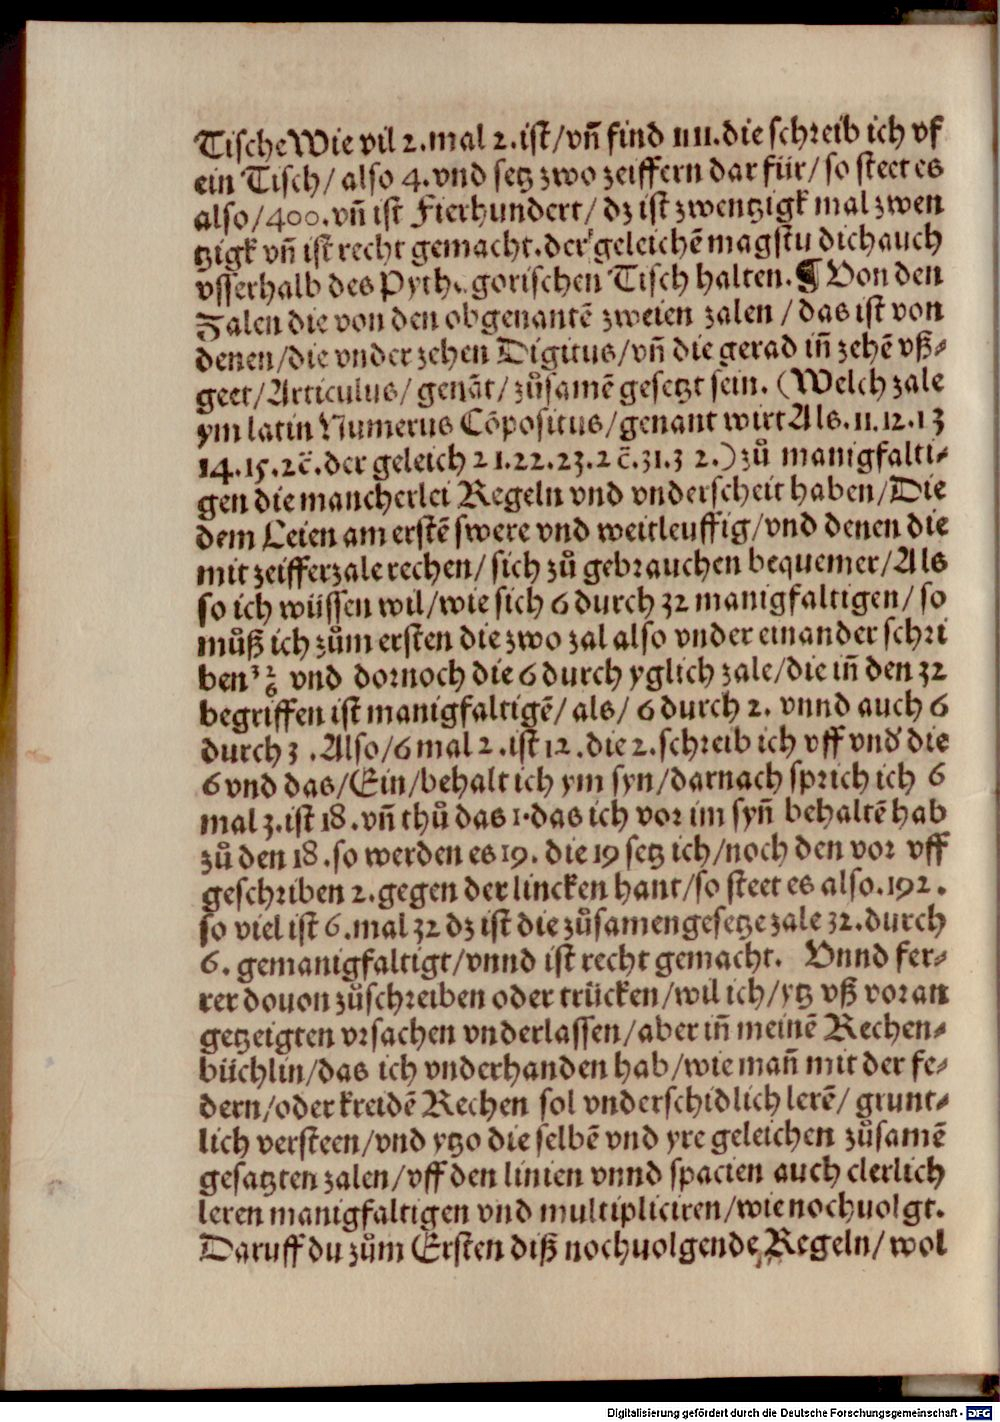 Tische Wie vil 2. mal 2. ist/ vn̄ find IIII. die schreib ich vf
ein Tisch/ also 4. vnd setz zwo zeiffern dar für/ so steet es
also/ 400. vn̄ ist Fierhundert/ dz ist zwentzigk mal zwen
tzigk vn̄ ist recht gemacht. der geleichē magstu dich auch
vsserhalb des Pyth gorischen Tisch halten. ¶ Von den
Zalen die von den obgenantē zweien zalen / das ist von
denen/ die vnder zehen Digitus/ vn̄ die gerad in̄ zehē vß⸗
geet/ Articulus/ genāt/ zůsamē gesetzt sein. (Welch zale
ym latin Numerus Cōpositus/ genant wirt Als. 11. 12. 13
14. 15. 2c̄. der geleich 21. 22. 23. 2c̄. 31. 3 2.) zů manigfalti⸗
gen die mancherlei Regeln vnd vnderscheit haben/ Die
dem Leien am erstē swere vnd weitleuffig/ vnd denen die
mit zeifferzale rechen/ sich zů gebrauchen bequemer/ Als
so ich wüssen wil/ wie sich 6 durch 32 manigfaltigen/ so
můß ich zům ersten die zwo zal also vnder einander schri
ben 3 2/6 vnd dornoch die 6 durch yglich zale/ die in̄ den 32
begriffen ist manigfaltigē/ als/ 6 durch 2. vnnd auch 6
durch 3 . Also/ 6 mal 2 . ist 12 . die 2. schreib ich vff vnd' die
6 vnd das/ Ein/ behalt ich ym syn/ darnach sprich ich 6
mal 3. ist 18 . vn̄ thů das 1. das ich vor im syn̄ behaltē hab
zů den 18 . so werden es 19. die 19 setz ich/ noch den vor vff
geschriben 2. gegen der lincken hant/ so steet es also. 192 .
so viel ist 6 . mal 32 dz ist die zůsamengesetze zale 32. durch
6. gemanigfaltigt/ vnnd ist recht gemacht. Vnnd fer⸗
rer douon zůschreiben oder trücken/ wil ich/ ytz vß vor an
getzeigten vrsachen vnderlassen/ aber in̄ meinē Rechen⸗
büchlin/ das ich vnderhanden hab/ wie man̄ mit der fe⸗
dern/ oder kreidē Rechen sol vnderschidlich lerē/ grunt⸗
lich versteen/ vnd ytzo die selbē vnd yre geleichen zůsamē
gesatzten zalen/ vff den linien vnnd spacien auch clerlich
leren manigfaltigen vnd multipliciren/ wie nochuolgt.
Daruff du zům Ersten diß nochuolgende Regeln/ wol
Digitalisierung gefördert durch die Deutsche Forschungsgemeinschaft - DFG